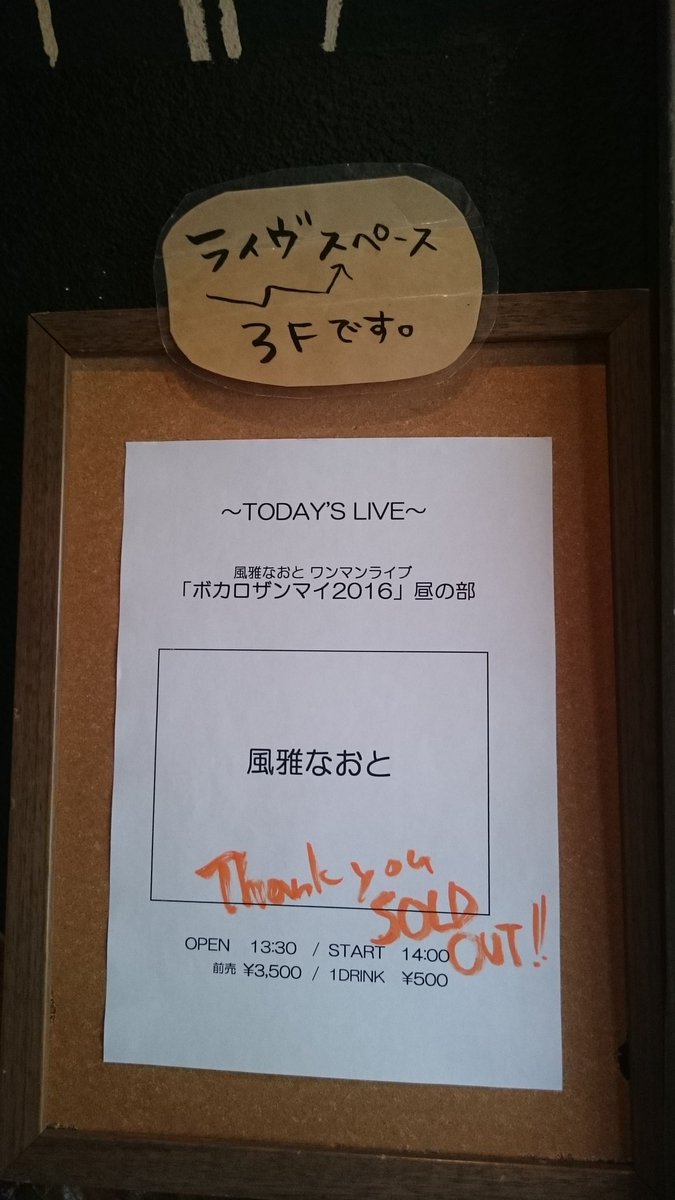 ライヴスペース
3Fです。
～TODAY'S LIVE～
風雅なおと ワンマンライブ
「ボカロザンマイ2016」昼の部
風雅なおと
Thank you
SOLD
OUT!!
OPEN 13:30 / START 14:00
前売 ¥3,500 / 1DRINK ¥500